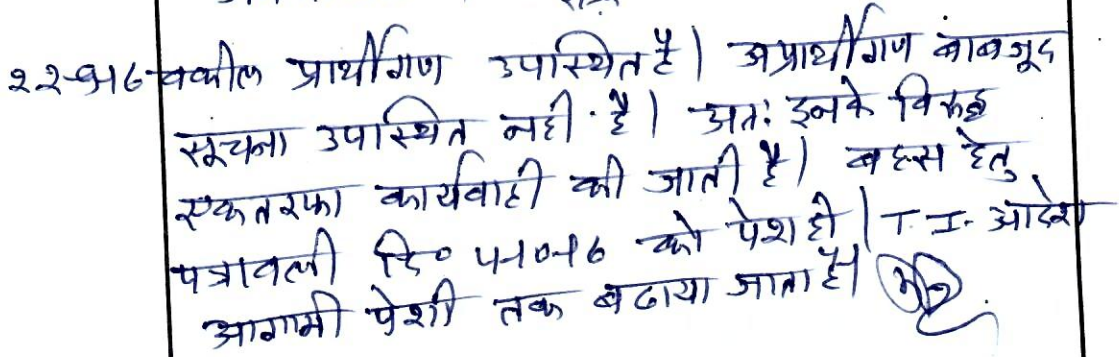 22-9-16 वकील प्रार्थीगण उपस्थित है। अप्रार्थीगण बाबजूद
सूचना उपस्थित नही है। अतः इनके विरूद्ध
एकतरफा कार्यवाही की जाती है। बहस हेतु
पत्रावली दि० 4-10-16 को पेश हो। T.I. आदेश
आगामी पेशी तक बढाया जाता है।